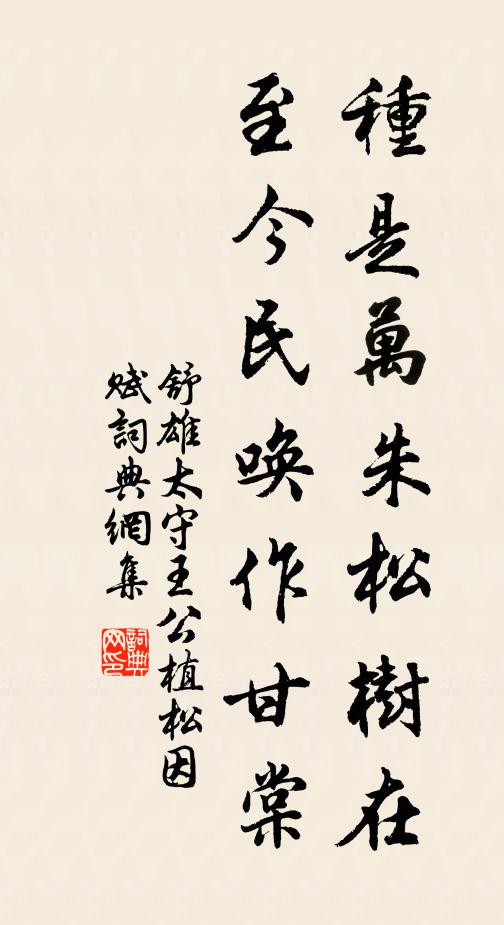 種是萬朱松樹在
至今民唤作甘棠
舒雄太守王公植松因
赋詞典網集
詞典
网印